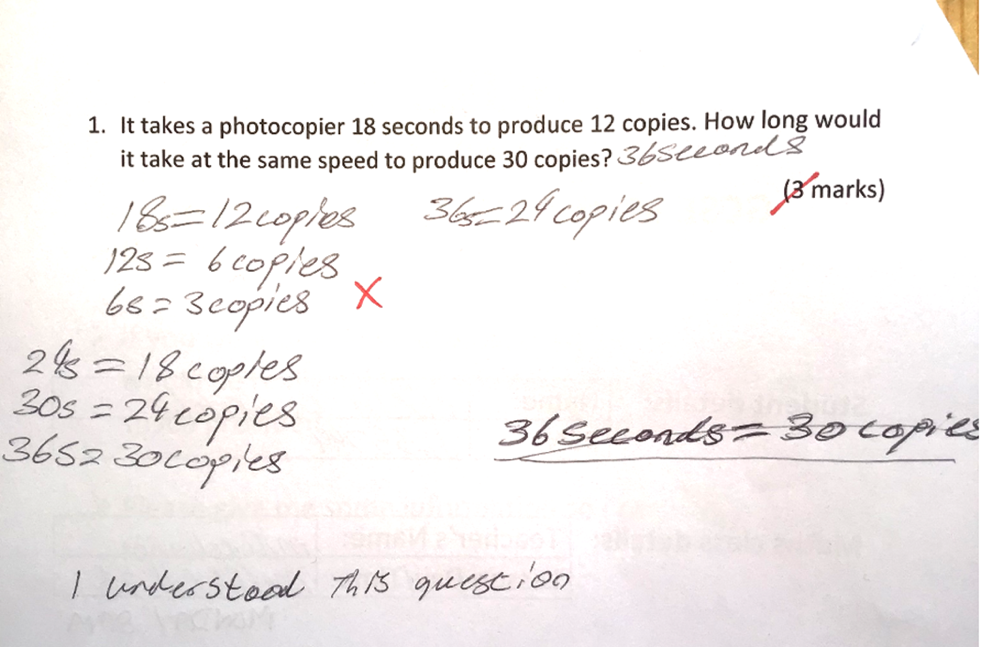 1. It takes a photocopier 18 seconds to produce 12 copies. How long would
it take at the same speed to produce 30 copies? 36 Seconds
(3 marks)
18s=12 copies 36s=24 copies
12s = 6 copies
6s = 3 copies X
24s = 18 copies
30s = 24 copies
36s = 30 copies
36 Seconds = 30 copies
I understood This question